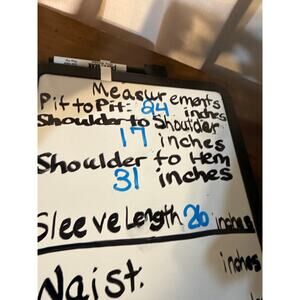 Measurements
Pit to Pit: 24 inches
Shoulder to Shoulder
17 inches
Shoulder to Hem
31 inches
Sleeve Length 26 inches
Waist: inches